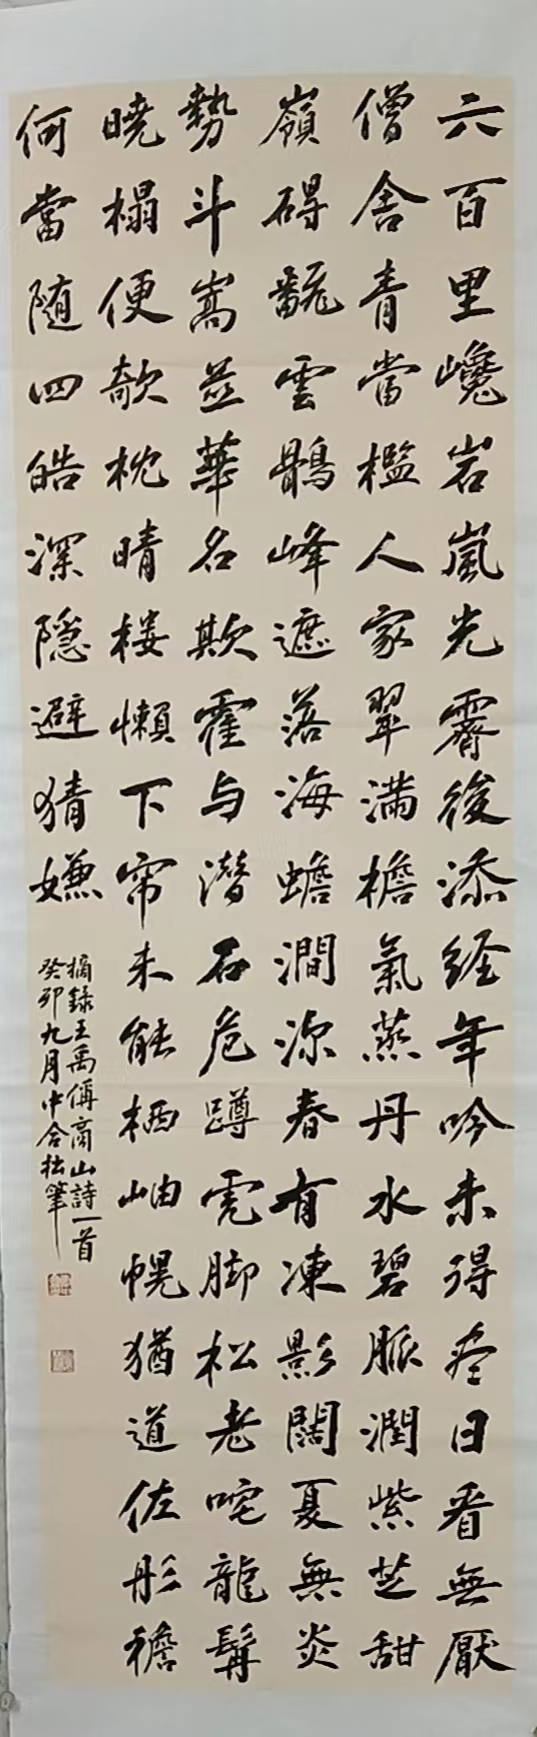 六百里巉岩嵐光霽後添经年吟未得尽日看無厭
僧舍青當檻人家翠满檐氣蒸丹水碧脈潤紫芝甜
嶺碍翫雲鶻峰遮落海蟾澗深春有凍影闊夏無炎
勢斗嵩並華名欺霍与潜石危蹲虎脚松老咤龍髯
曉榻便欹枕晴楼懒下帘未能栖岫幌猶道佐彤襜
何當随四皓深隱避猜嫌
摘録王禹偁商山詩一首
癸卯九月中合松筆